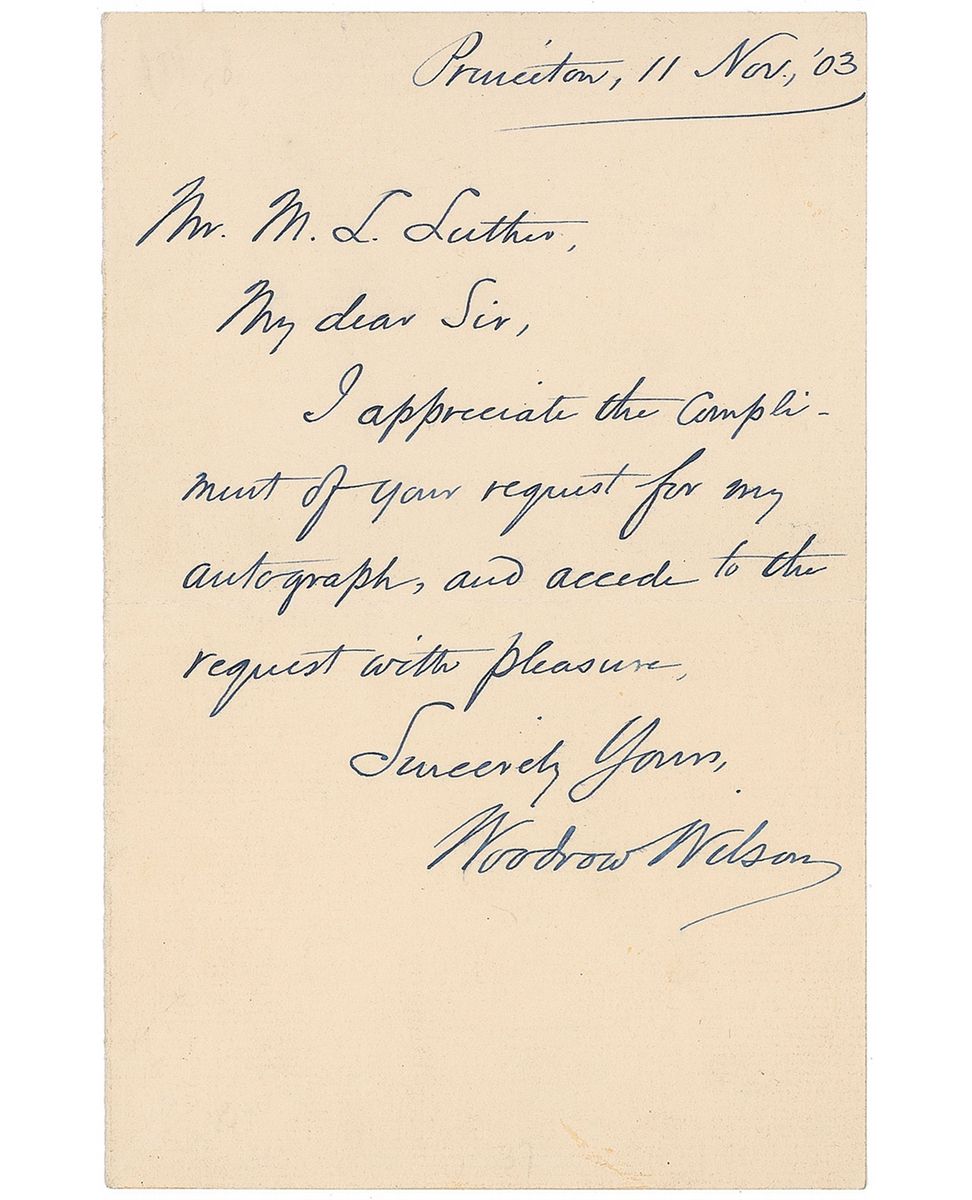 Princeton, 11 Nov., '03
Mr. M. L. Luther,
My dear Sir,
I appreciate the compli-
ment of your request for my
autograph, and accede to the
request with pleasure,
Sincerely Yours,
Woodrow Wilson